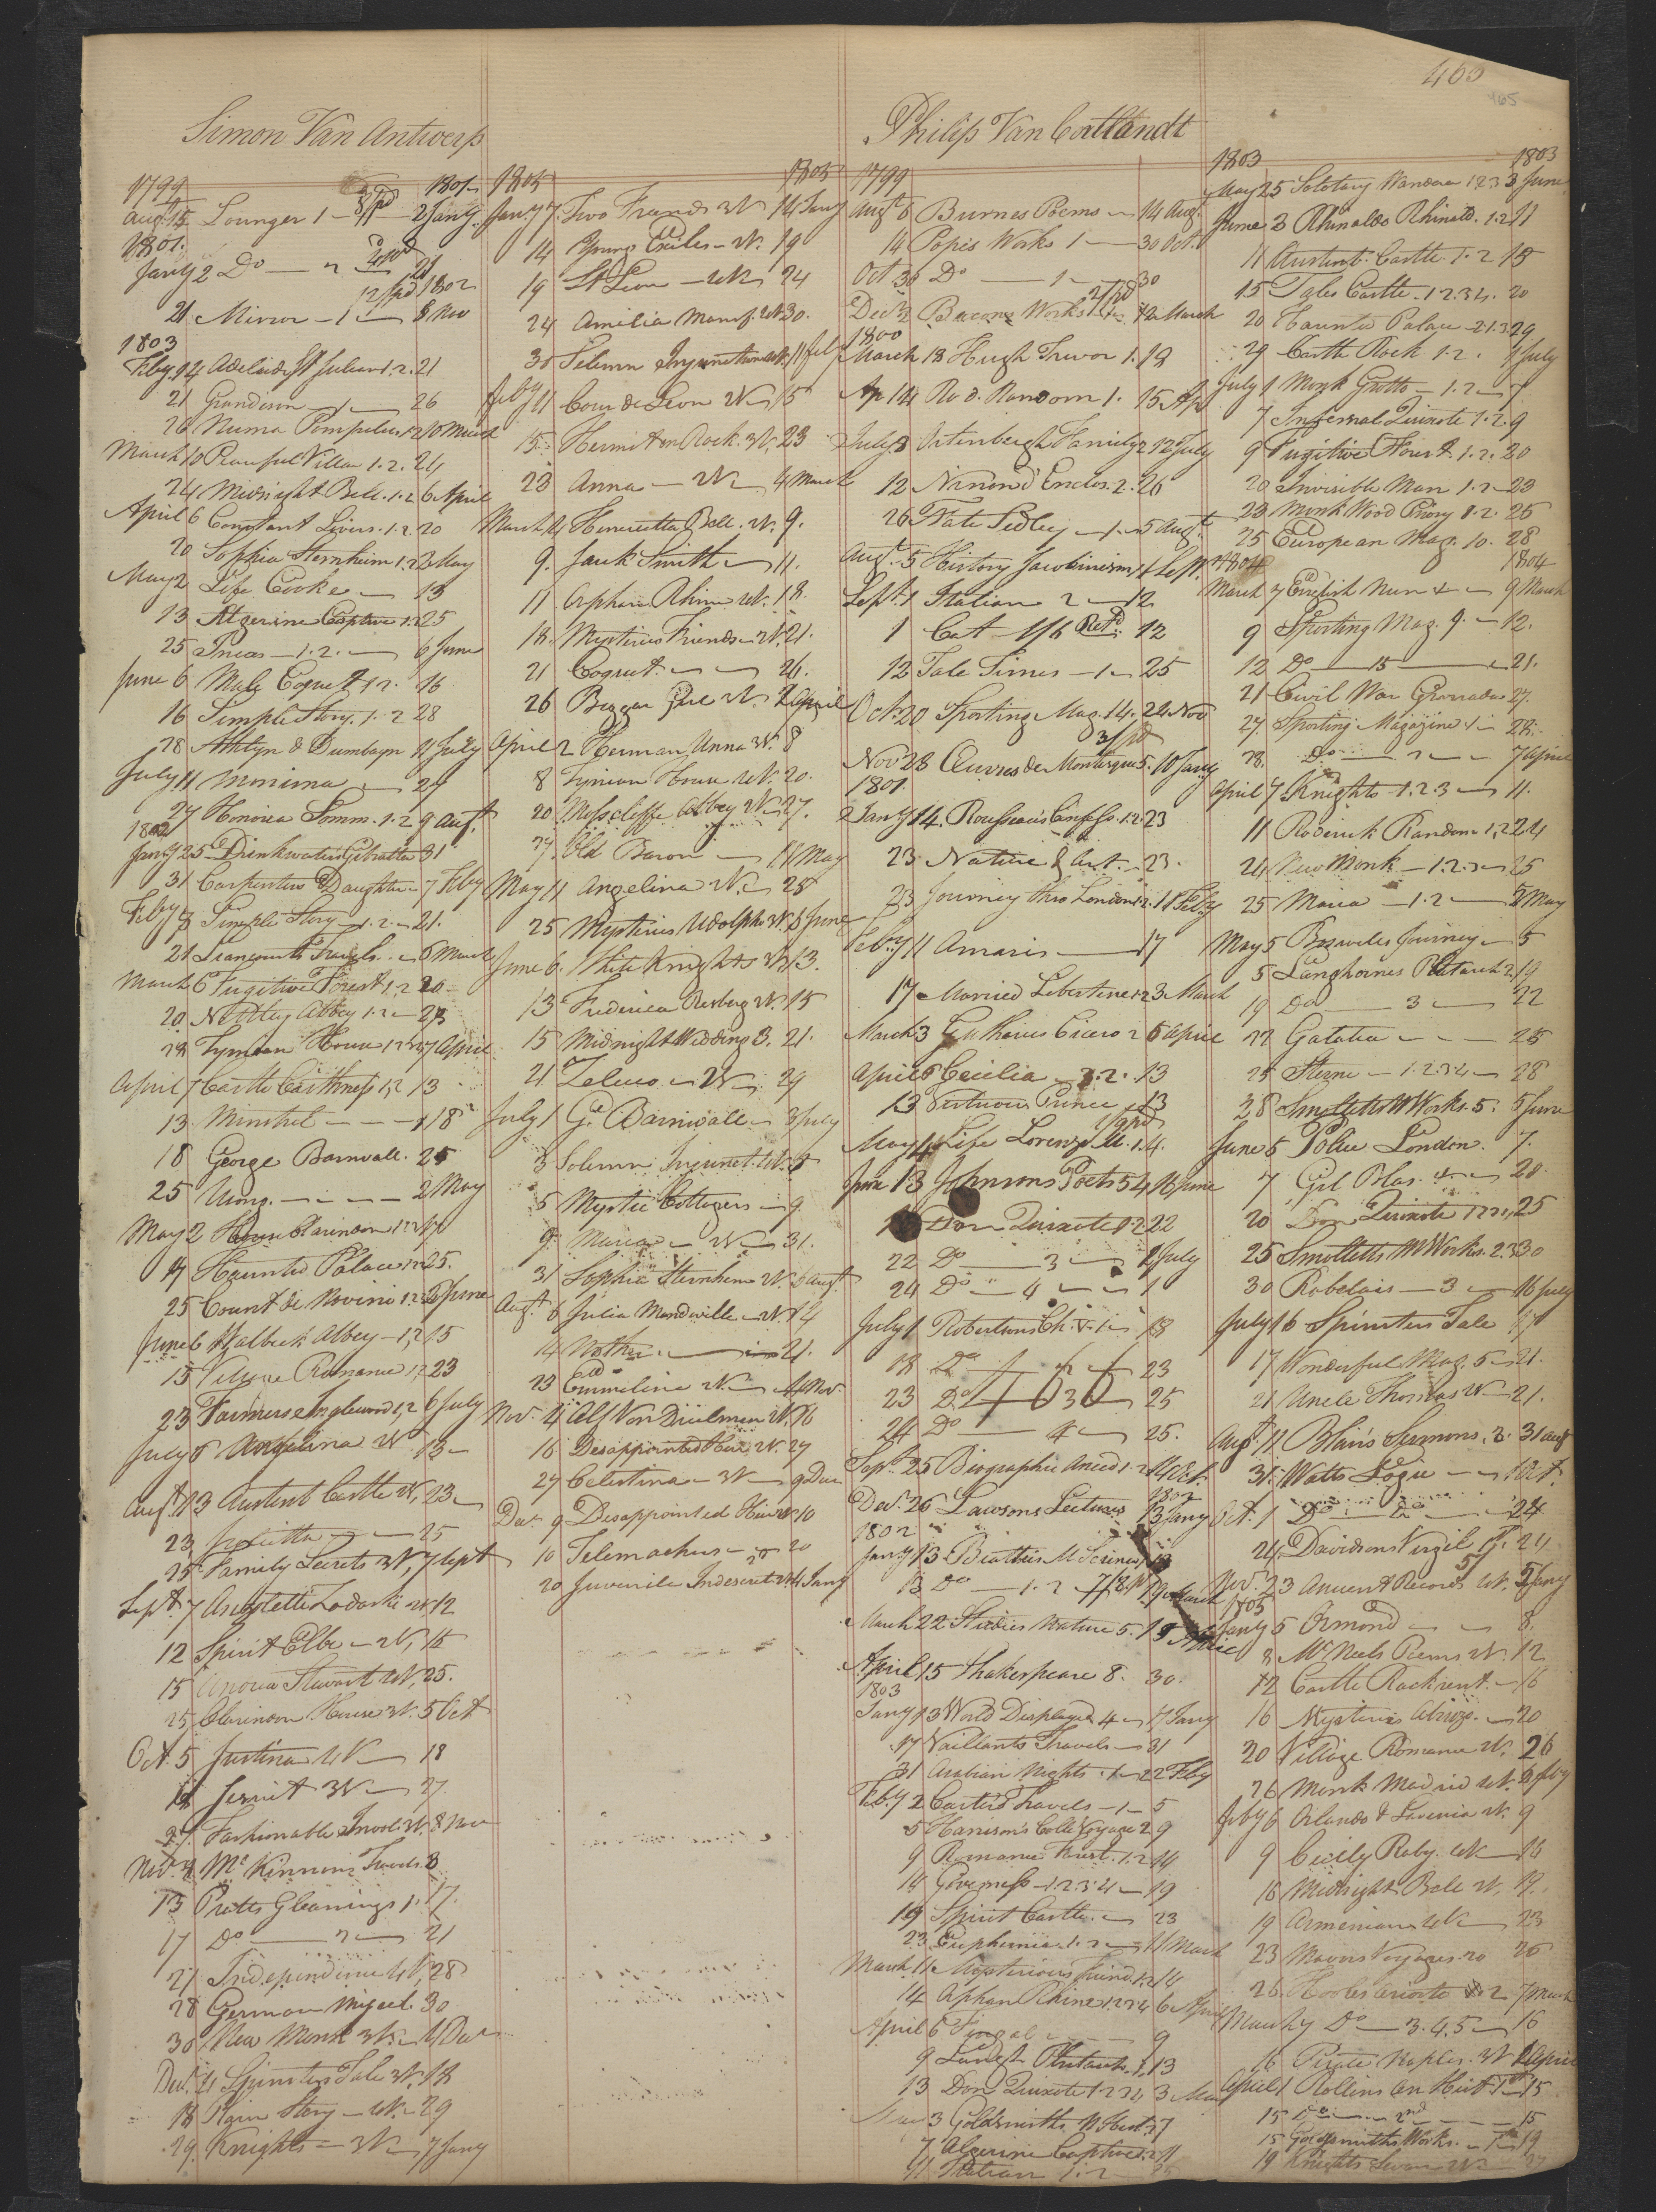 465
465
Simon Van Antwerp
1799 1801
Augt 15 Lounger 1 2 Jany
1801
Jany 2 Do 2 21
1802
21 Mirror 1 8 Nov
1803
Feby 14 Adelaide St Julian 1.2. 21
21 Grandison 1 26
26 Numa Pompilius 1.2 10 March
March 10 Peaceful Villa 1.2. 24
24 Midnight Bell 1.2 6 April
April 6 Constant Lovers 1.2. 20
20 Sophia Sternheim 1.2 2 May
May 2 Life Cooke 13
13 Algerine Captive 1.2 25
25 Incas 1.2. 6 June
June 6 Male Coquett 1.2. 16
16 Simple Story 1.2 28
28 Athlyn & Dumbayn 11 July
July 11 Monima 27
27 Honoria Somm. 1.2 9 Augt
1802
Jany 25 Drinkwaters Gibralter 31
31 Carpenters Daughter 7 Feby
Feby 8 Simple Story 1.2 21.
21 Travels 6 March
March 6 Fugitive Forest 1.2 20
20 Netley Abbey 1.2 23
Lymoon House 7 April
April 7 Castle Caithness 1.2 13
13 Minstrel 18
18 George Barnwall 25
25 2 May
May 2 House Clarendon 17
17 Haunted Palace 25.
25 Count de Novini 1.2.3 6 June
June 6 Walbeck Abbey 1.2 15
15 Village Romance 1.2 23
23 Farmers Inglewood 1.2 6 July
July 6 Angelina W 13
Augt 13 Austent Castle W. 23
23 Julietta 25
25 Family Secrets 3W. 7 Sept
Sept 7 Angelette Lodoski W 12
12 Spirit Elbe W. 15
15 Stewart W. 25.
25 Clarendon House 3W. 5 Oct
Oct 5 Justina W 18
18 Jesuit 3W 27
27 Fashionable 8 Nov
Nov 8 Mc Kinnons Travels
13 Pratts Gleanings 1. 17.
17 Do 2 21
21 Independence W. 28
28 German Miscel. 30
30 New Monk 3W. 4 Dec
Dec 4 Spinsters Tale 3W. 18
18 Plain Story W. 29
29 Knights 3W 7 Jany
1803 1803
Jany 7 Two Friends 3W 14 Jany
14 Young Exiles W. 19
19 St Leon W 24
24 Amelia Mansf. W 30.
30 Solemn Injunction W. 11 Feby
Feby 11 Coeur de Leon W 15
15 Hermit on Rock. W. 23
23 Anna W 4 March
March 4 Henrietta Bell. W. 9.
9. Jack Smith 11.
11 Orphan Rhine W. 18.
18. Mysterious Friends W. 21.
21 Coquet. 26.
26 Beggar Girl W. 2 April
April 2 Herman Unna W. 8
8 Lymoon House W. 20.
20 Mosscliffe Abbey W 27.
27. Old Baron 11 May
May 11 Angelina W. 25
25 Mysteries Udolpho W. 6 June
June 6. White Knights W. 13.
13 Frederica Risberg W. 15
15 Midnight Wedding 3. 21.
21 Zeluco W 29
July 1 Go Barnwall 3 July
3 Solemn Injunct. W. 5
5 Mystic Cottagers 9.
9 Maria W 31.
31 Sophia Sternheim W. 6 Augt
Augt 6 Julia Mandville W. 14
14 21.
23 Emmeline W. 4 Nov.
Nov. 4 Alf Von Duilman W. 16
16 Disappointed Heir W. 27
27 Celestina W 9 Dec
Dec 9 Disappointed Heir W. 10
10 Telemachus 20
20 Juvenile Indiscret. 4 Jany
Philip Van Cortlandt
1799
Augt 6 Burnes Poems 14 Augt
14 Popes Works 1 30 Oct.
Oct 30 Do 1 30
Decr 2 Bacons Works 12 March
1800
March 13 Hugh Trevor 1. 18
Ap 14 Rod. Random 1. 15 Ap
July 2 Ortenbergh Family 2 12 July
12 Ninon d'Enclos. 2. 26
26 Nate Sedley 1. 5 Augt
Augt 5 History Jacobinism 1 4 Sept.
Sept. 1 Italian 2 12
1 Cat 1/6 Retd 12
12 Tale Times 1 25
Oct. 20 Sporting Mag. 14. 24 Nov
Nov 28 Œuvres de Montesque 5. 10 Jany
1801
Jany 14. Rousseau's Confess. 1.2. 23
23 Nature & Art. 23.
23 Journey thro London 1.2. 11 Feby
Feby 11 Amaris 17
17 Married Libertine 1.2 3 March
March 3 Guthries Cicero 2 6 April
April 6 Cecilia 1.2. 13
13 Virtuous Prince 13
May 14 Life Lorenzo M. 1.4.
June 13 Johnsons Poets 54 16 June
Don Quixote 1.2 22
22 Do 3 1 July
24 Do 4 1
July 1 Robertsons Ch. V. 1 18
18 Do 23
23 Do 25
24 Do 4 25.
466
Sept. 25 Biographic Anecd 1.2 14 Oct.
1802
Dec. 26 Lawsons Lectures 13 Jany
1802
Jany 13 Beatties M Science 13
13 Do 1.2 19 March
March 22 Studies Nature 5. 15 April
April 15 Shakespeare 8. 30.
1803
Jany 13 World Displayed 4 17 Jany
17 Vaillants Travels 31
31 Arabian Nights 1 22 Feby
Feby 2 Carters Travels 1 5
5 Harrison's Colle Voyage 2 9
9 Romance Forest. 1.2 14
14 Governess 1.2.3.4 19
19 Spirit Castle 23
23 Euphemia 1.2 11 March
March 11 Mysterious friend 1.2 14
14 Orphan Rhine 1.2.3.4 6 April
April 6 Fingal 9
9 Plutarch. 1. 13
13 Don Quixote 1.2.3.4 3 May
May 3 Goldsmiths N Hist. 7
7 Algerine Captive 1.2 11
11 Italian 1.2
1803 1803
May 25 Solotary Wandrer 1.2.3 3 June
June 3 Rhinaldo Rhinald. 1.2 11
11 Austent. Castle 1.2 15
15 Tales Castle. 1.2.3.4. 20
20 Haunted Palace 2.1.3 29
29 Castle Rock 1.2. 1 July
July 1 Monk Grotto 1.2 7
7 Infernal Quixote 1.2. 9
9 Fugitive Forest. 1.2. 20
20 Invisible Man 1.2 23
23 Monk Wood Priory 1.2. 25
25 European Mag. 10. 28
1804 1804
March 7 English Nun 9 March
9 Sporting Mag. 9. 12.
12 Do 15 21.
21 Civil War Grannadas 27.
27. Sporting Magazine 1 28.
28. Do 2 7 April
April 7 Knights 1.2.3 11.
11 Roderick Random 1.2 24
24 New Monk 1.2.3 25
25 Maria 1.2 5 May
May 5 Boswells Journey 5
5 Langhornes Plutarch 2 19
19 Do 3 22
22 Galatea 25
25 Sterne 1.2.3.4 28
28 Smolletts M Works. 5. 5 June
June 5 Police London. 7.
7 Gil Blas. 4. 20.
20 Don Quixote 25
25 Smolletts M Works. 2.3 30
30 Rabelais 3 16 July
July 16 Spinsters Tale 17
17 Wonderful Mag. 5 21.
21 Uncle Thomas W 21.
Augt. 11 Blairs Sermons. 3. 31 Aug
31. Watts Logic 1 Oct.
Oct. 1 Do Do 24
24. Davidsons Virgil 24
Nov. 23 Ancient Records W. 5 Jany
1805
Jany 5 Ormond 8.
8 Mc Neels Poems W. 12
12 Castle Rackrent. 16
16 Mysterious 20
20 Village Romance W. 26
26 Monk Madrid W. 6 Feby
Feby 6 Orlando & Lavinia W. 9
9 Cicely Raby. W 16
16 Midnight Bell W. 19.
19 Armenian W 23
23 Mavors Voyages. 20 26
26 Hooles Ariosto 2 7 March
March 7 Do 3.4.5 16
16 Pirate Naples. 3W 1 April
April 1 Rollins An Hist. 1 15
15 Do 2nd 15
15 Goldsmiths Works. 19
19 Knights Swan W